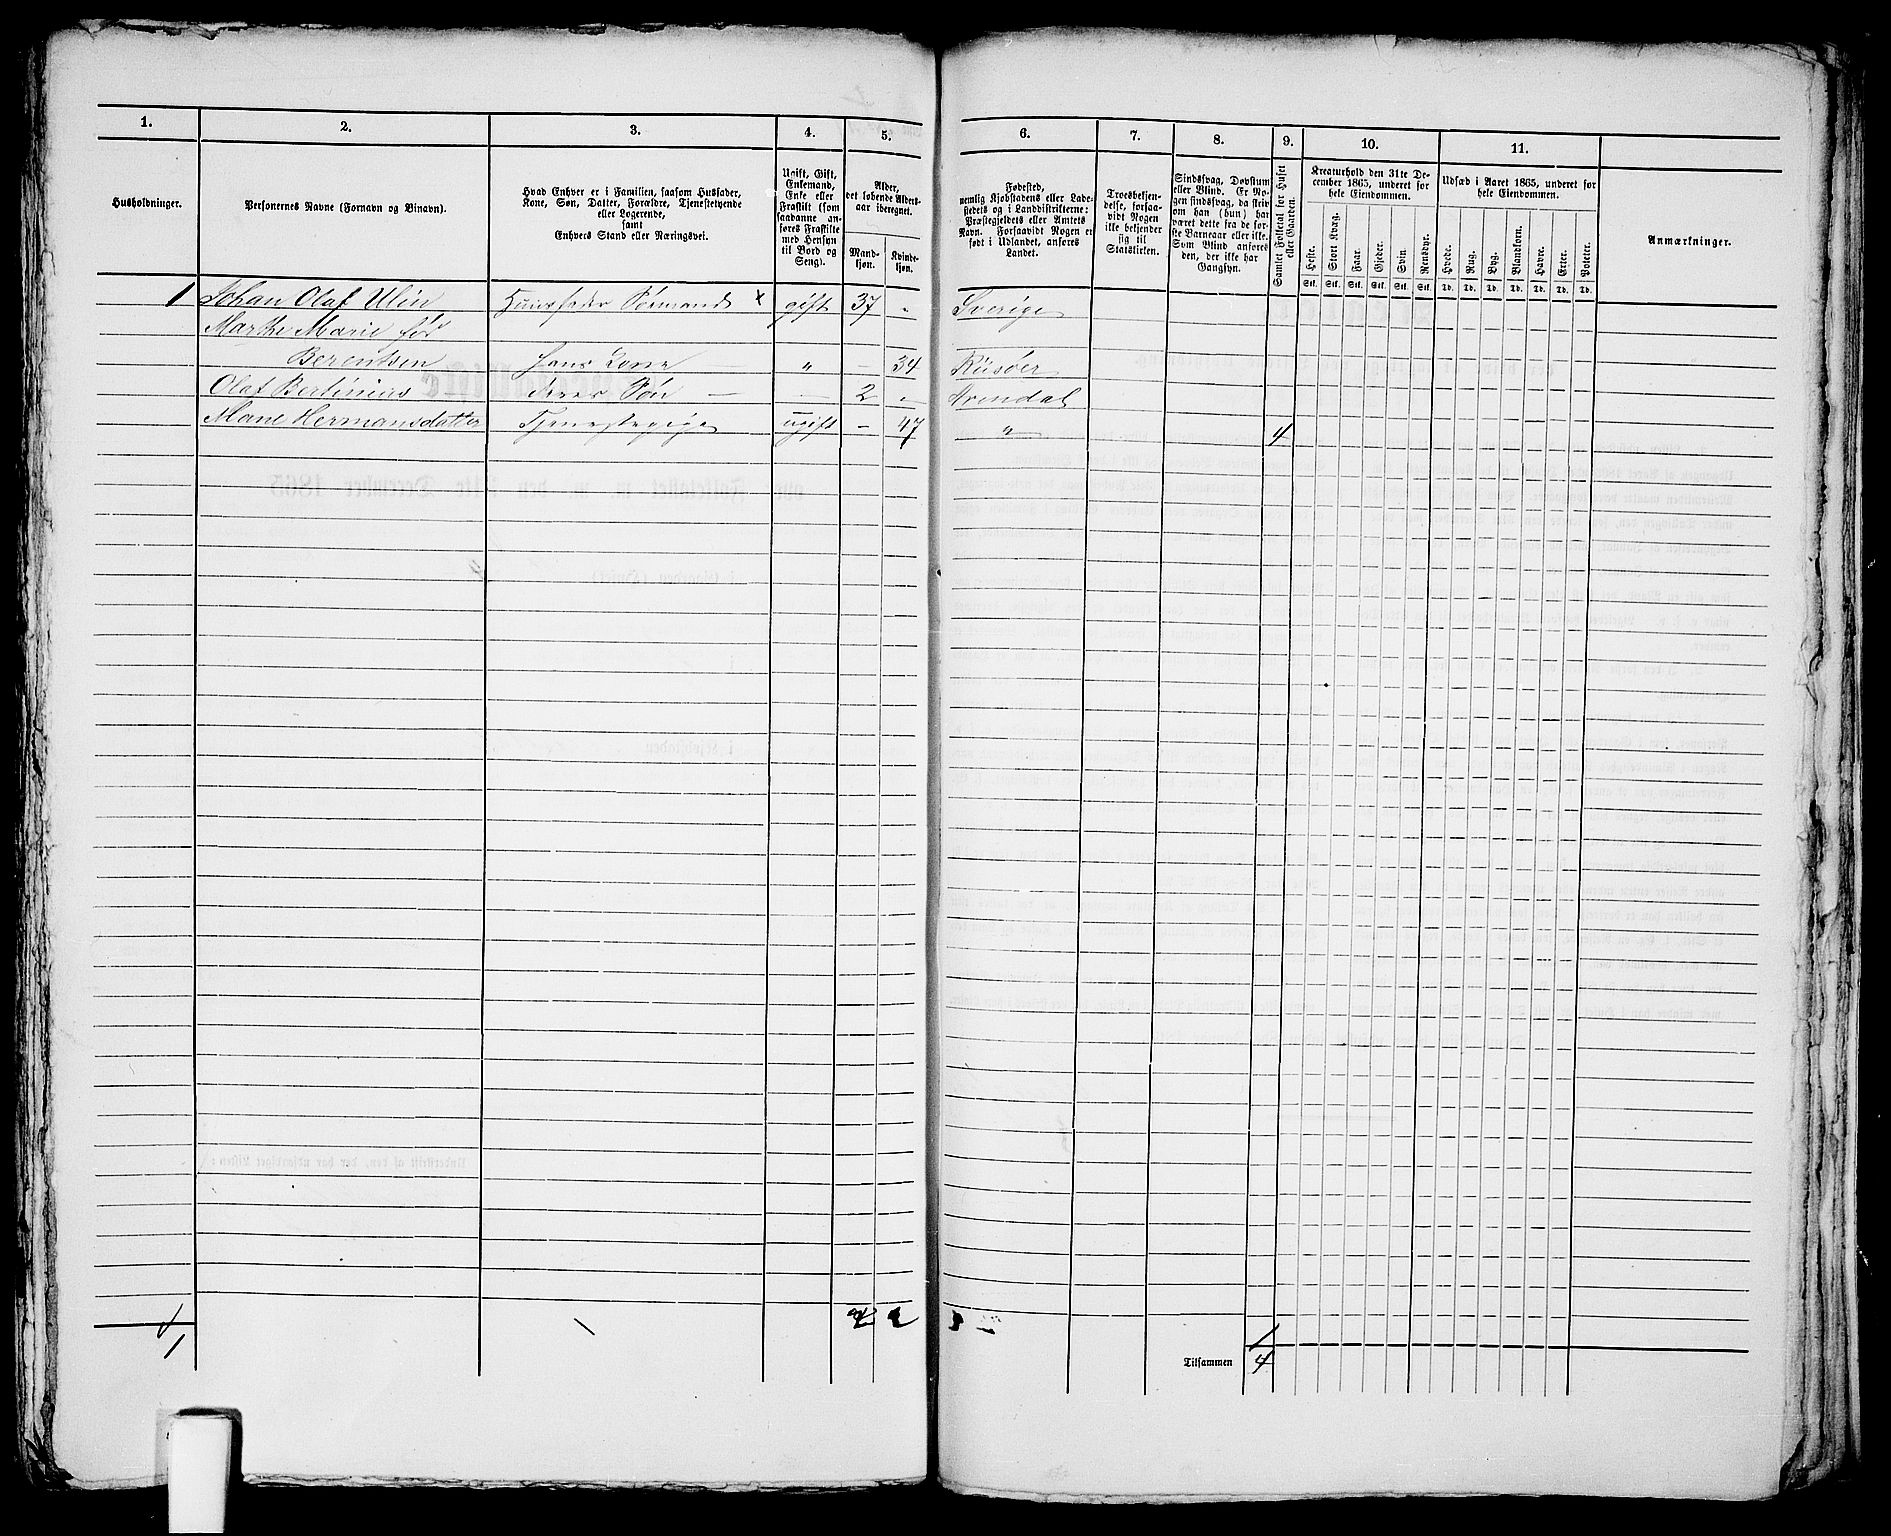 1. 2. 3. 4. 5. 6. 7. 8. 9. 10. 11.
Husholdninger.
Personernes Navne (Fornavn og Binavn).
Hvad Enhver er i Familien, saasom Husfader,
Kone, Søn, Datter, Forældre, Tjenestetyende
eller Logerende,
samt
Enhvers Stand eller Næringsvei.
Ugift, Gift,
Enkemand,
Enke eller
Fraskilt (som
saadanne an-
føres Fraskilte
med Hensyn
til Bord og
Seng).
Alder,
det løbende Alders-
aar iberegnet.
Mand-
kjøn.
Kvinde-
kjøn.
Fødested,
nemlig Kjøbstadens eller Lade-
stedets og i Landdistrikterne:
Præstegjeldets eller Amtets
Navn. Forsaavidt Nogen er
født i Udlandet, anføres
Landet.
Troesbekjen-
delse, forsaa-
vidt Nogen
ikke bekjender
sig til
Statskirken.
Sindssvag, Døvstum
eller Blind. Er No-
gen sindssvag, da skriv
om han (hun) har
været dette fra de før-
ste Barneaar eller ikke.
Som Blind anføres
den, der ikke har
Gangsyn.
Samlet Folketal for Huset
eller Gaarden.
Kreaturhold den 31te De-
cember 1865, underet for
hele Eiendommen.
Heste. Stort Kvæg. Faar. Gjeder. Svin. Rensdyr.
Stk. Stk. Stk. Stk. Stk. Stk.
Udsæd i Aaret 1865, underet for
hele Eiendommen.
Hvede. Rug. Byg. Blandkorn. Havre. Erter. Poteter.
Td. Td. Td. Td. Td. Td. Td.
Anmærkninger.
1 Johan Olaf Ulin Huusfader Sømand x gift 37 " Sverige
Marthe Marie før
Berentsen hans Kone " – 34 Risøer
Olaf Bertinius deres Søn – – 2 – Arendal
Mane Hermansdatter Tjenestepige ugift – 47 " 4
1
Tilsammen 4